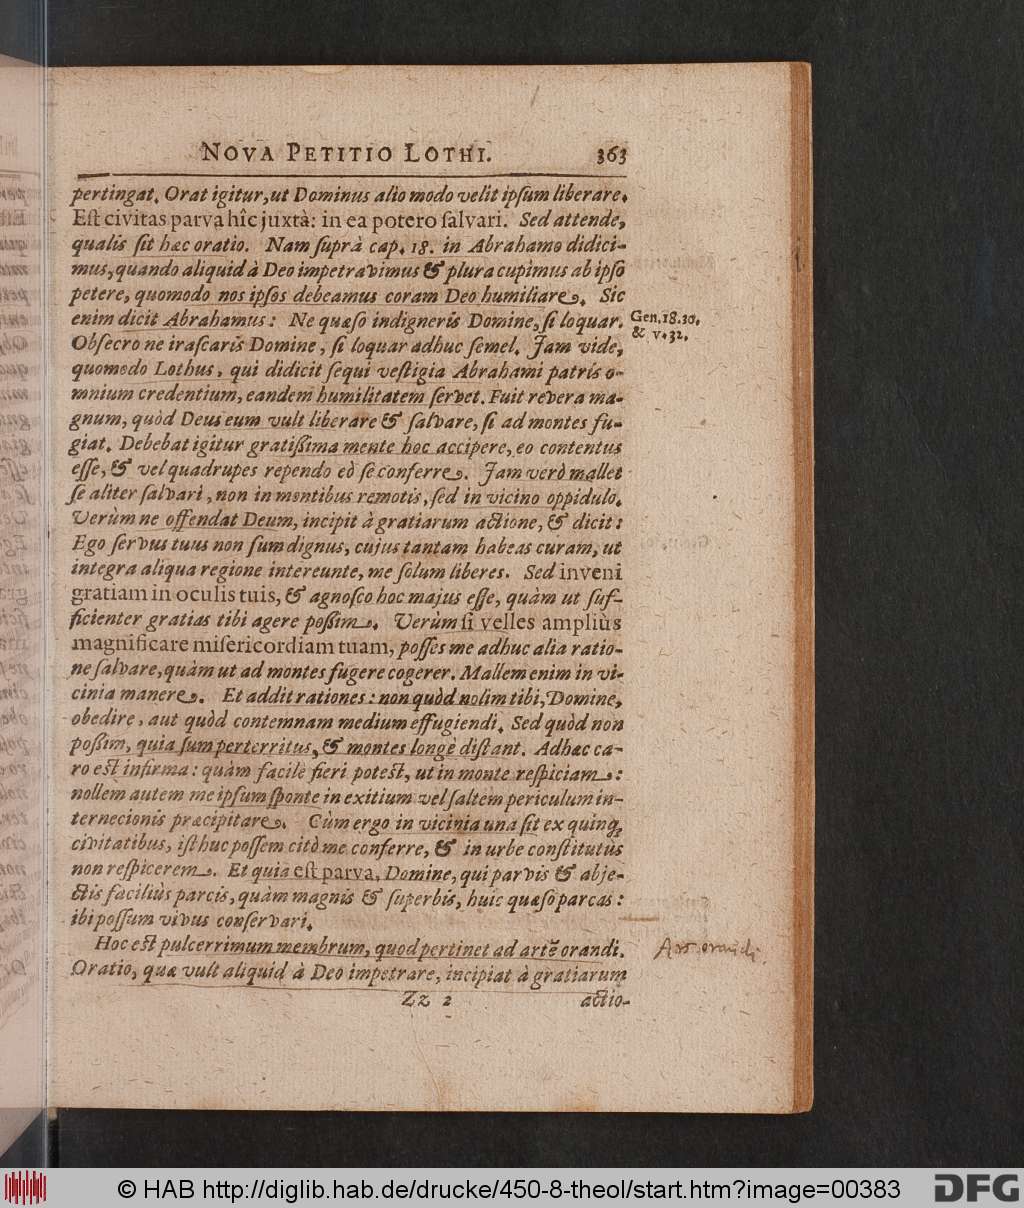 NOVA PETITIO LOTHI. 363
pertingat. Orat igitur, ut Dominus alio modo velit ipſum liberare.
Eſt civitas parva hîc juxtà: in ea potero ſalvari. Sed attende,
qualis ſit hæc oratio. Nam ſuprà cap. 18. in Abrahamo didici-
mus, quando aliquid à Deo impetravimus & plura cupimus ab ipſo
petere, quomodo nos ipſos debeamus coram Deo humiliare. Sic
enim dicit Abrahamus: Ne quæſo indigneris Domine, ſi loquar.
Gen. 18. 30.
& v. 32.
Obſecro ne iraſcaris Domine, ſi loquar adhuc ſemel. Jam vide,
quomodo Lothus, qui didicit ſequi veſtigia Abrahami patris o-
mnium credentium, eandem humilitatem ſervet. Fuit revera ma-
gnum, quòd Deus eum vult liberare & ſalvare, ſi ad montes fu-
giat. Debebat igitur gratiſſima mente hoc accipere, eo contentus
eſſe, & vel quadrupes rependo eò ſe conferre. Jam verò mallet
ſe aliter ſalvari, non in montibus remotis, ſed in vicino oppidulo.
Verùm ne offendat Deum, incipit à gratiarum actione, & dicit:
Ego ſervus tuus non ſum dignus, cujus tantam habeas curam, ut
integra aliqua regione intereunte, me ſolum liberes. Sed inveni
gratiam in oculis tuis, & agnoſco hoc majus eſſe, quàm ut ſuf-
ficienter gratias tibi agere poſſim. Verùm ſi velles ampliùs
magnificare miſericordiam tuam, poſſes me adhuc alia ratio-
ne ſalvare, quàm ut ad montes fugere cogerer. Mallem enim in vi-
cinia manere. Et addit rationes: non quòd nolim tibi, Domine,
obedire, aut quòd contemnam medium effugiendi. Sed quòd non
poſſim, quia ſum perterritus, & montes longè diſtant. Adhæc ca-
ro eſt infirma: quàm facilè fieri poteſt, ut in monte reſpiciam:
nollem autem me ipſum ſponte in exitium vel ſaltem periculum in-
ternecionis præcipitare. Cùm ergo in vicinia una ſit ex quinq;
civitatibus, iſthuc poſſem citò me conferre, & in urbe conſtitutus
non reſpicerem. Et quia eſt parva, Domine, qui parvis & abje-
ctis faciliùs parcis, quàm magnis & ſuperbis, huic quæſo parcas:
ibi poſſum vivus conſervari.
Hoc eſt pulcerrimum membrum, quod pertinet ad artē orandi.
Ars orandi.
Oratio, quæ vult aliquid à Deo impetrare, incipiat à gratiarum
Zz 2 actio-
© HAB http://diglib.hab.de/drucke/450-8-theol/start.htm?image=00383
DFG